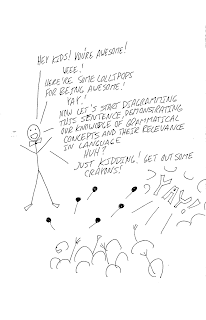 HEY KIDS! YOU'RE AWESOME!
WEEE!
HERE'RE SOME LOLLIPOPS
FOR BEING AWESOME!
YAY!
NOW LET'S START DIAGRAMMING
THIS SENTENCE, DEMONSTRATING
OUR KNOWLEDGE OF GRAMMATICAL
CONCEPTS AND THEIR RELEVANCE
IN LANGUAGE
HUH?
JUST KIDDING! GET OUT SOME
CRAYONS!
YAY!